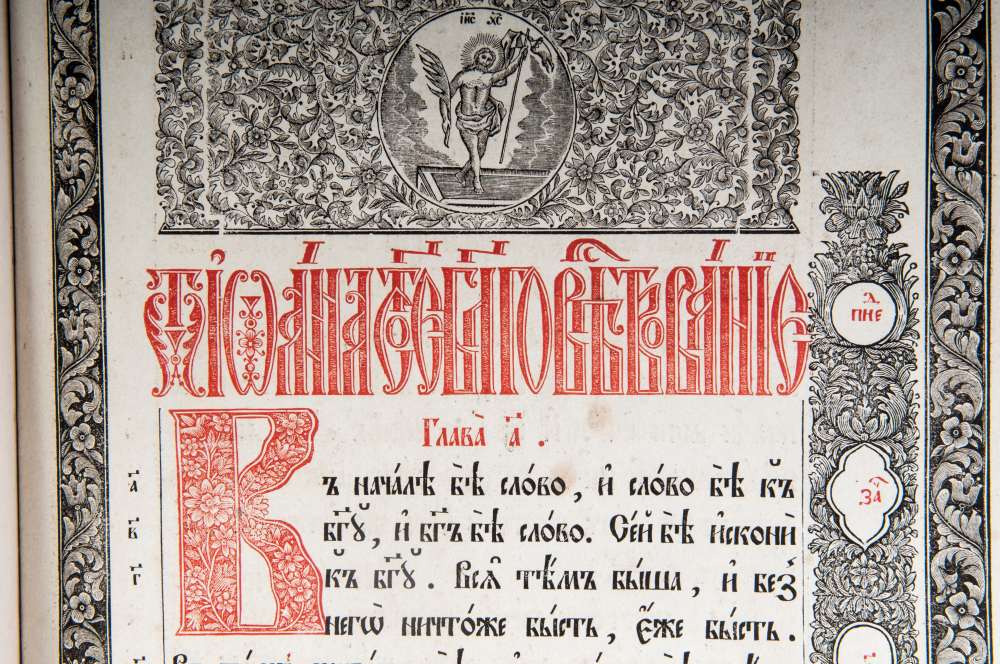 І҆И҃С Х҃С
Ѿ І҆Ѡа́нна ст҃о́е бл҃говѣствова́нїе
Глава̀ а҃ .
Въ нача́лѣ бѣ̀ сло́во , и҆ сло́во бѣ̀ къ
бг҃ꙋ , и҆ бг҃ъ бѣ̀ сло́во . Се́й бѣ̀ и҆сконѝ
къ бг҃ꙋ . Всѧ̑ тѣ́мъ бы́ша , и҆ без̾
негѡ̀ ничто́же бы́сть , є҆́же бы́сть .
а҃
в҃
г҃
зач҃